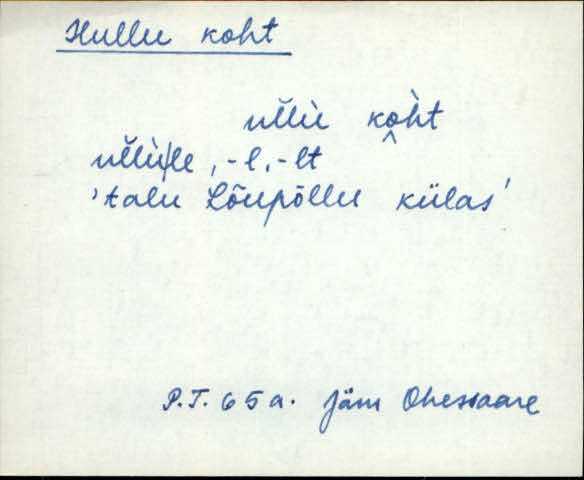 Hullu koht
ul̆lù kòht
ul̆lù|le, -l, -lt
'talu Lõupõllu külas'
P.T. 65 a. Jäm Ohessaare